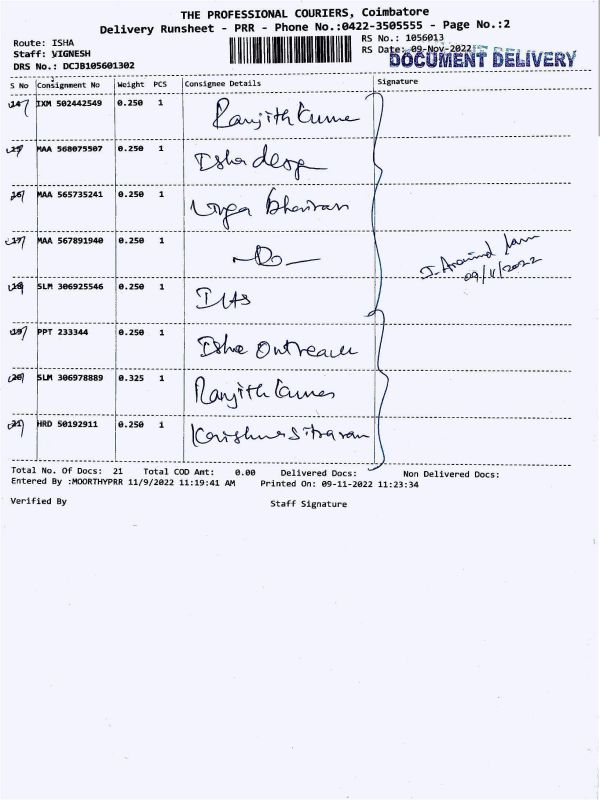 THE PROFESSIONAL COURIERS, Coimbatore
Delivery Runsheet - PRR - Phone No.:0422-3505555 - Page No.:2
Route: ISHA
RS No.: 1056013
Staff: VIGNESH
RS Date: 09-Nov-2022
DRS No.: DCJB105601302
DOCUMENT DELIVERY
S No Consignment No Weight PCS Consignee Details Signature
14 IXM 502442549 0.250 1 Ranjith Kumar
15 MAA 568075507 0.250 1 Isha
16 MAA 565735241 0.250 1 Linga Bhairavi
17 MAA 567891940 0.250 1 -Do-
J. Aravind
09/11/2022
18 SLM 306925546 0.250 1
19 PPT 233344 0.250 1 Isha Outreach
20 SLM 306978889 0.325 1 Ranjith Kumar
21 HRD 50192911 0.250 1
Total No. Of Docs: 21 Total COD Amt: 0.00 Delivered Docs: Non Delivered Docs:
Entered By :MOORTHYPRR 11/9/2022 11:19:41 AM Printed On: 09-11-2022 11:23:34
Verified By Staff Signature